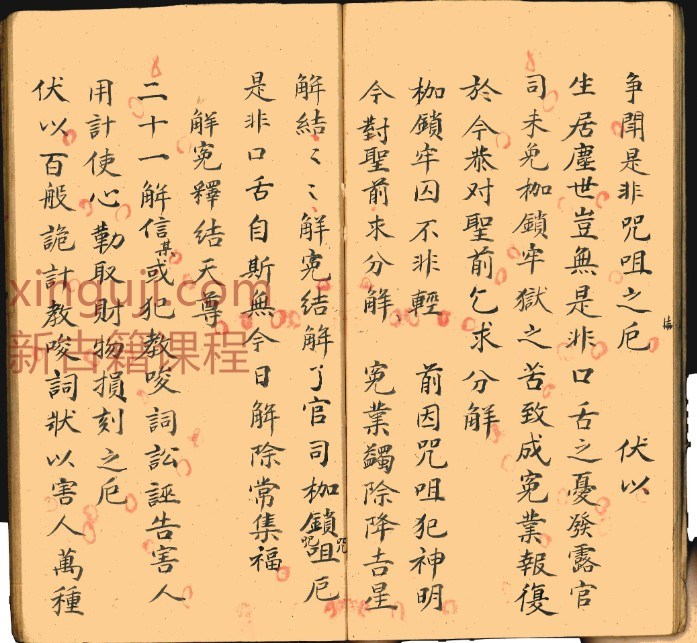 争鬧是非咒咀之厄 伏以
生居塵世豈無是非口舌之憂發露官
司未免枷鎖牢獄之苦致成寃業報復
於今恭对聖前乞求分解
枷鎖牢囚不非輕 前因咒咀犯神明
今對聖前求分解 寃業蠲除降吉星
解結〻〻解寃結解了官司枷鎖咒咀厄
是非口舌自斯無今日解除常集福
解寃釋結天尊
二十一解信某或犯教唆詞訟誣告害人
用計使心勤取財物損刻之厄
伏以百般詭計教唆詞狀以害人萬種
xinguji.com
新古籍课程